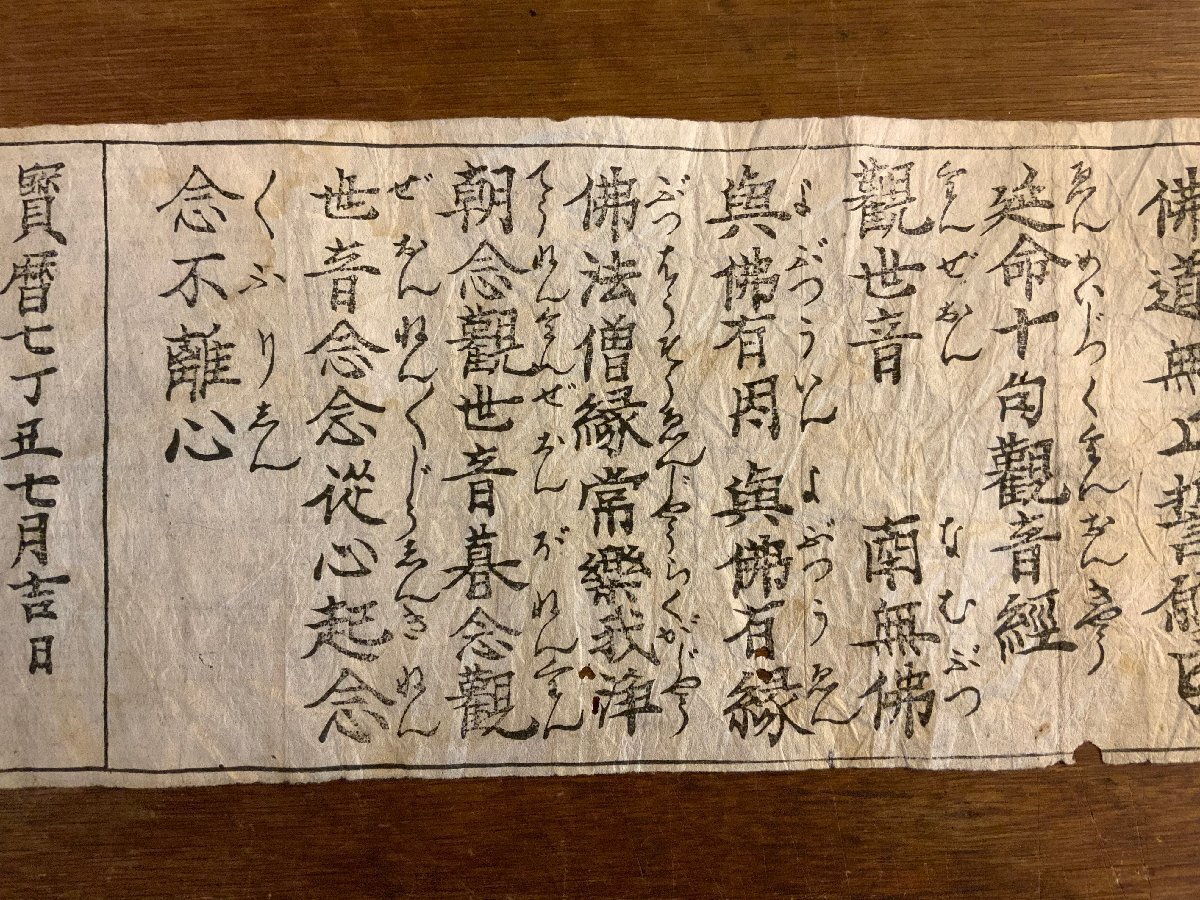 佛道無上誓願
ゑんめいじつくくわんおんきやう
延命十句觀音經
くわんぜおん　なむぶつ
觀世音　南無佛
よぶつういん　よぶつうゑん
與佛有因　與佛有縁
ぶつほうそうゑんじやうらくがじやう
佛法僧縁常樂我淨
てうねんくわんぜおん　ぼねんくわん
朝念觀世音暮念觀
ぜおんねん〱じうしんきねん
世音念念從心起念
くふりしん
念不離心
寳暦七丁丑七月吉日